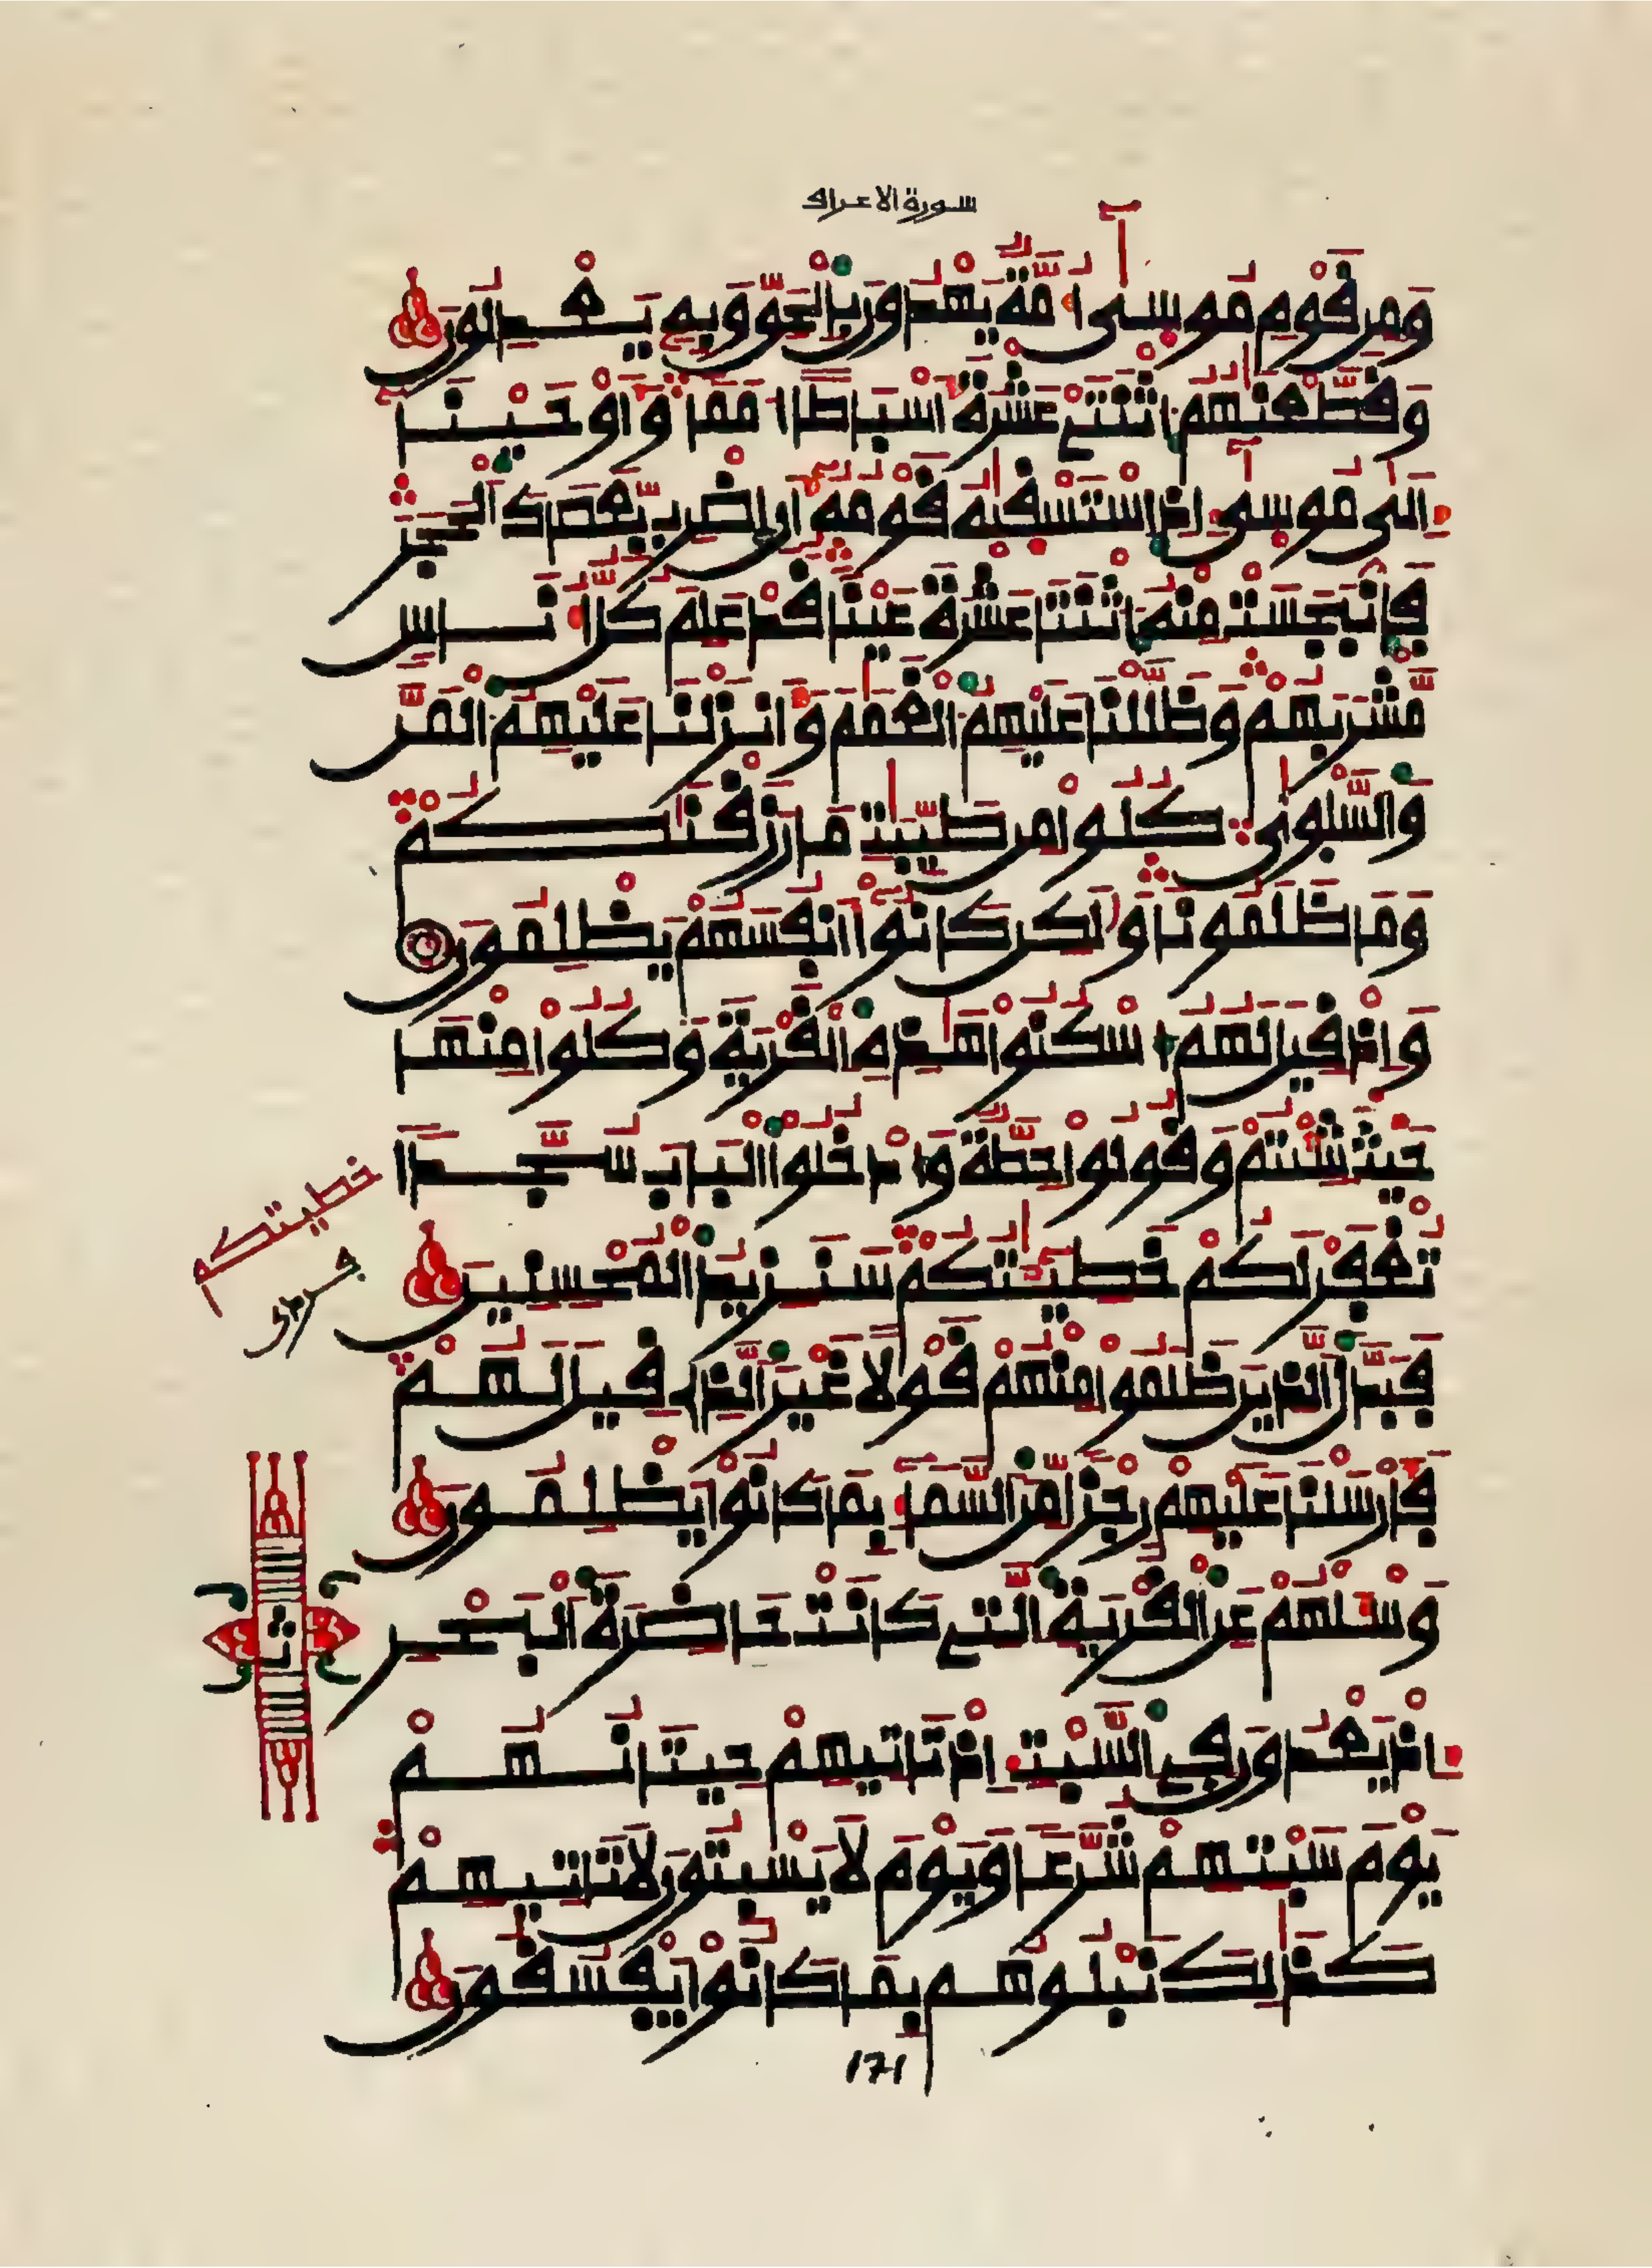 سورة الاعراف
وَمِن قَوْمِ مُوسىٰٓ أُمَّةٌ يَهْدُونَ بِالْحَقِّ وَبِهِ يَعْدِلُونَ
وَقَطَّعْنَٰهُمُ اثْنَتَيْ عَشْرَةَ أَسْبَاطًا أُمَمًا وَأَوْحَيْنَا
إِلَىٰ مُوسىٰٓ إِذِ اسْتَسْقَىٰهُ قَوْمُهُ أَنِ اضْرِب بِّعَصَاكَ الْحَجَرَ
فَانبَجَسَتْ مِنْهُ اثْنَتَا عَشْرَةَ عَيْنًا قَدْ عَلِمَ كُلُّ أُنَاسٍ
مَّشْرَبَهُمْ وَظَلَّلْنَا عَلَيْهِمُ الْغَمَٰمَ وَأَنزَلْنَا عَلَيْهِمُ الْمَنَّ
وَالسَّلْوىٰ كُلُوا مِن طَيِّبَٰتِ مَا رَزَقْنَٰكُمْ
وَمَا ظَلَمُونَا وَلَٰكِن كَانُوا أَنفُسَهُمْ يَظْلِمُونَ
وَإِذْ قِيلَ لَهُمُ اسْكُنُوا هَٰذِهِ الْقَرْيَةَ وَكُلُوا مِنْهَا
حَيْثُ شِئْتُمْ وَقُولُوا حِطَّةٌ وَادْخُلُوا الْبَابَ سُجَّدًا
تُغْفَرْ لَكُمْ خَطِيـَٰٔتُكُمْ سَنَزِيدُ الْمُحْسِنِينَ
خطيتكم
فَبَدَّلَ الَّذِينَ ظَلَمُوا مِنْهُمْ قَوْلًا غَيْرَ الَّذِي قِيلَ لَهُمْ
فَأَرْسَلْنَا عَلَيْهِمْ رِجْزًا مِّنَ السَّمَاءِ بِمَا كَانُوا يَظْلِمُونَ
وَسْـَٔلْهُمْ عَنِ الْقَرْيَةِ الَّتِي كَانَتْ حَاضِرَةَ الْبَحْرِ
ث
إِذْ يَعْدُونَ فِي السَّبْتِ إِذْ تَاتِيهِمْ حِيتَانُهُمْ
يَوْمَ سَبْتِهِمْ شُرَّعًا وَيَوْمَ لَا يَسْبِتُونَ لَا تَاتِيهِمْ
كَذَٰلِكَ نَبْلُوهُم بِمَا كَانُوا يَفْسُقُونَ
171